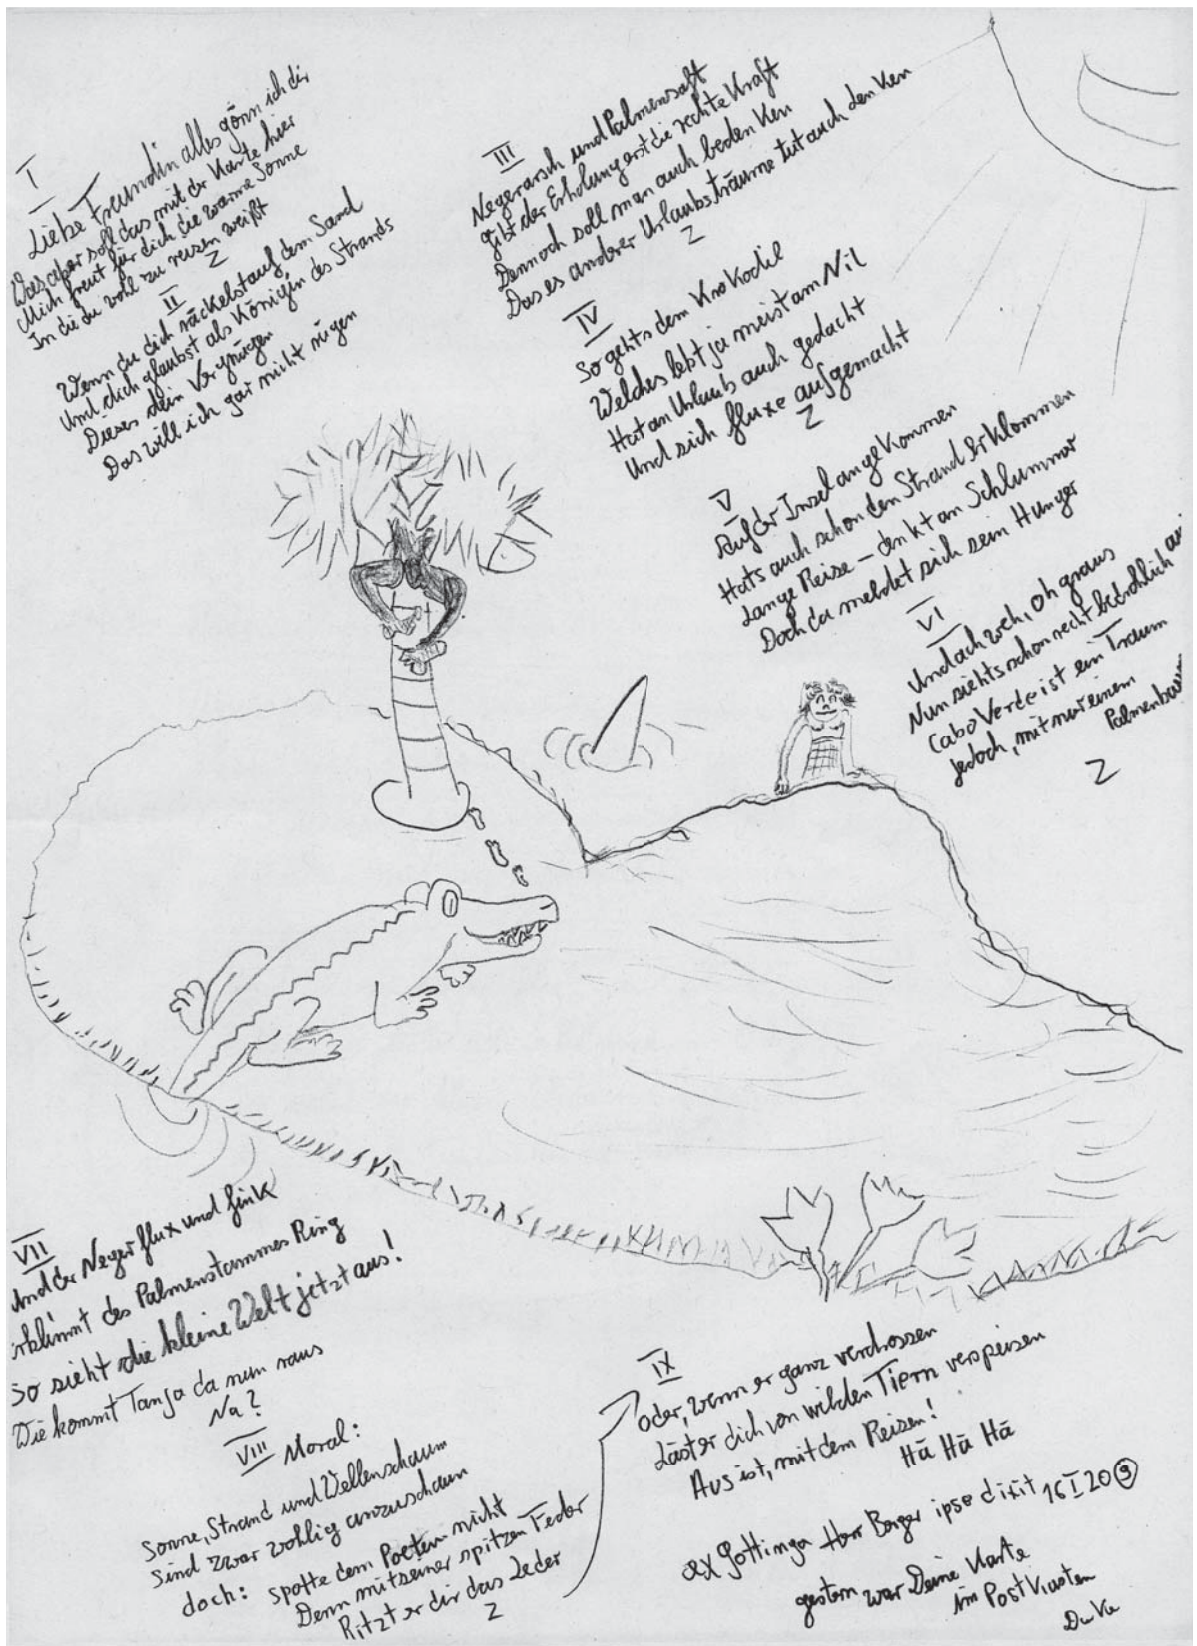 I
Liebe Freundin alles gönn ich dir
Was aber soll das mit der Karte hier
Mich freut für dich die warme Sonne
In die du wohl zu reisen weißt
Z
II
Wenn du dich räckelst auf dem Sand
Und dich glaubst als Königin des Strands
Dieses dein Vergnügen
Das will ich gar nicht rügen
III
Negerarsch und Palmensaft
gibt der Erholung erst die rechte Kraft
Dennoch soll man auch bedenken
Das es anderer Urlaubsträume tut auch lenken
Z
IV
So gehts dem Krokodil
Welches lebt ja meist am Nil
Hat an Urlaub auch gedacht
Und sich fluxe aufgemacht
Z
V
Auf der Insel angekommen
Hats auch schon den Strand erklommen
Lange Reise – denkt an Schlummer
Doch da meldet sich sein Hunger
VI
Und ach weh, oh graus
Nun siehts schon recht bedrohlich aus
Cabo Verde ist ein Traum
jedoch, mit nur einem
Palmenbaum
Z
VII
Und der Neger flux und fink
erklimmt des Palmenstammes Ring
So sieht die kleine Welt jetzt aus!
Wie kommt Tanja da nun raus
Na?
VIII Moral:
Sonne, Strand und Wellenschaum
sind zwar wohlig anzuschaun
doch: spotte dem Poeten nicht
Denn mit seiner spitzen Feder
Ritzt er dir das Leder
Z
IX
oder, wenn er ganz verdrossen
Läst er dich von wilden Tiern verspeisen
Aus ist, mit dem Reisen!
Hā Hā Hā
ex Gottinga Herr Berger ipse dixit 16 I 20 9
gestern war Deine Karte
im Postkasten